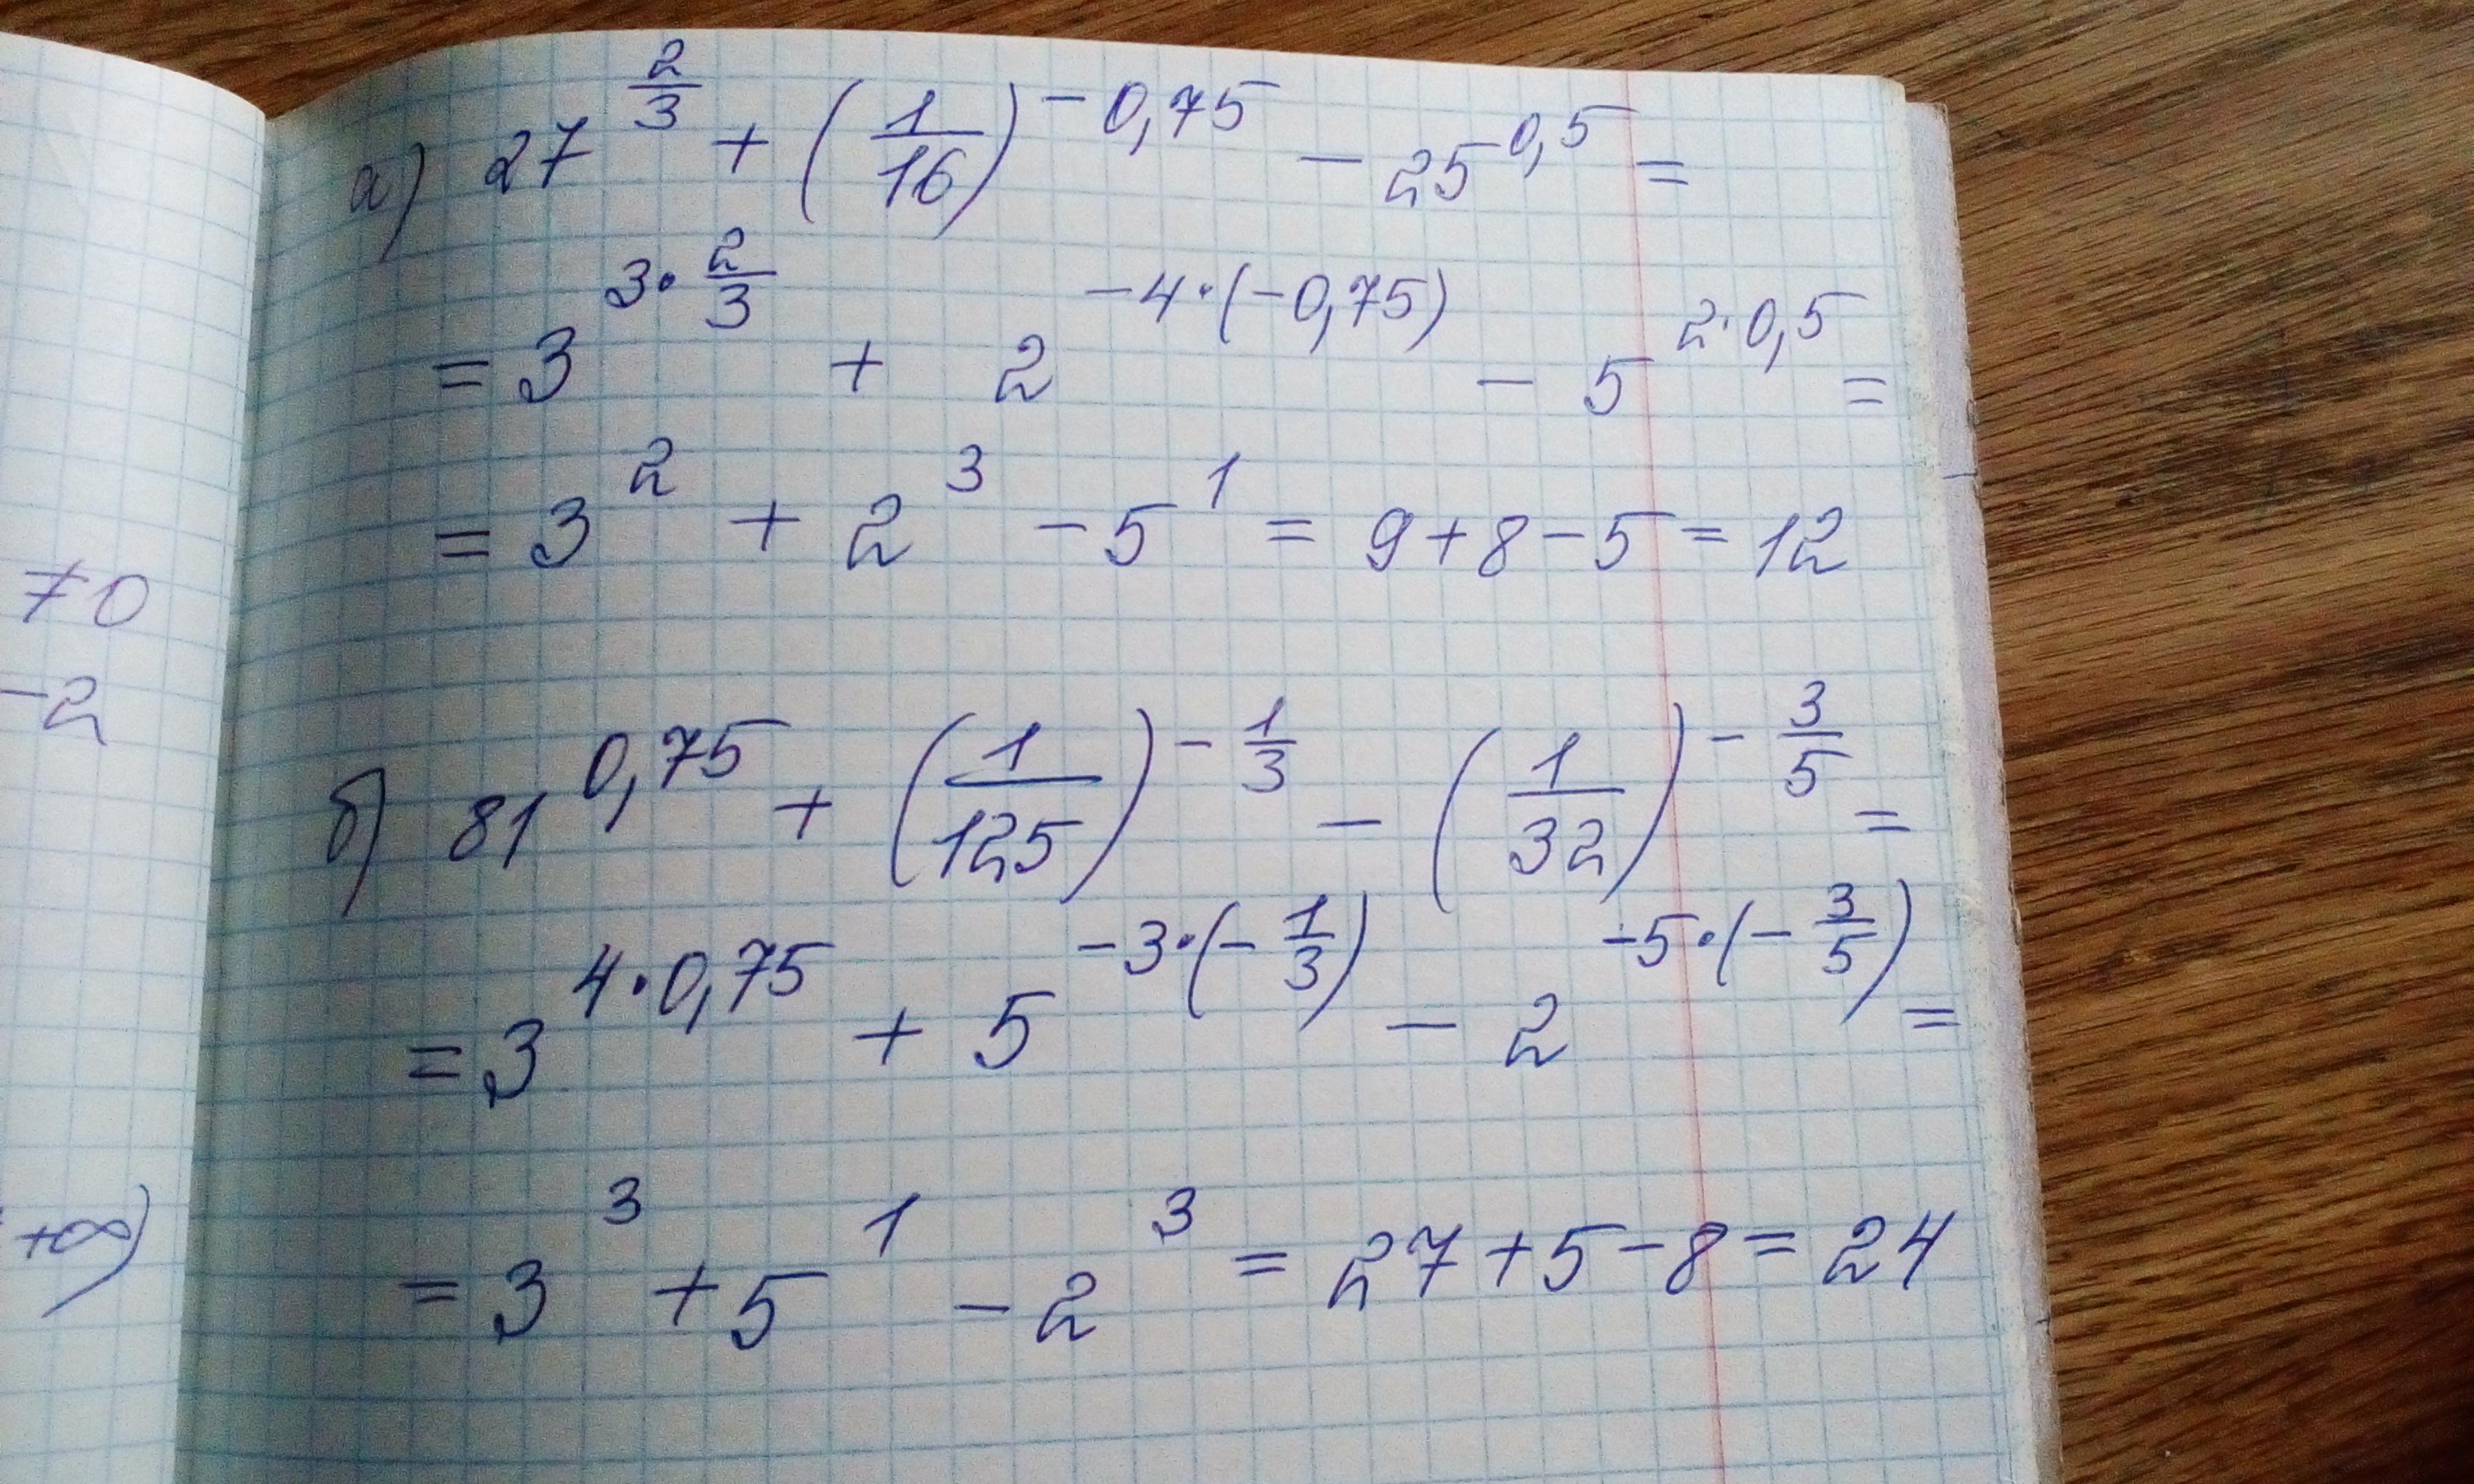 ≠0
-2
+∞)
а) 27^(2/3) + (1/16)^(-0,75) - 25^(0,5) =
= 3^(3·2/3) + 2^(-4·(-0,75)) - 5^(2·0,5) =
= 3^2 + 2^3 - 5^1 = 9+8-5=12
б) 81^(0,75) + (1/125)^(-1/3) - (1/32)^(-3/5) =
= 3^(4·0,75) + 5^(-3·(-1/3)) - 2^(-5·(-3/5)) =
= 3^3 + 5^1 - 2^3 = 27+5-8=24